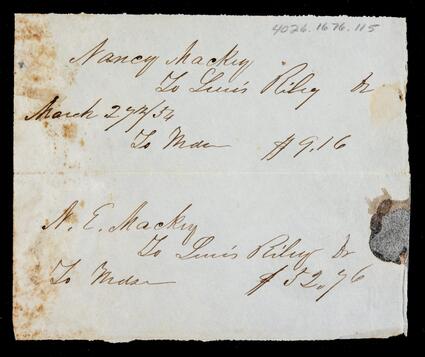 4026.1676.115
Nancy Mackey
To Lewis Riley Dr
March 27th/54
To Mdse $9.16
N. E. Mackey
To Lewis Riley Dr
To Mdse $52.76